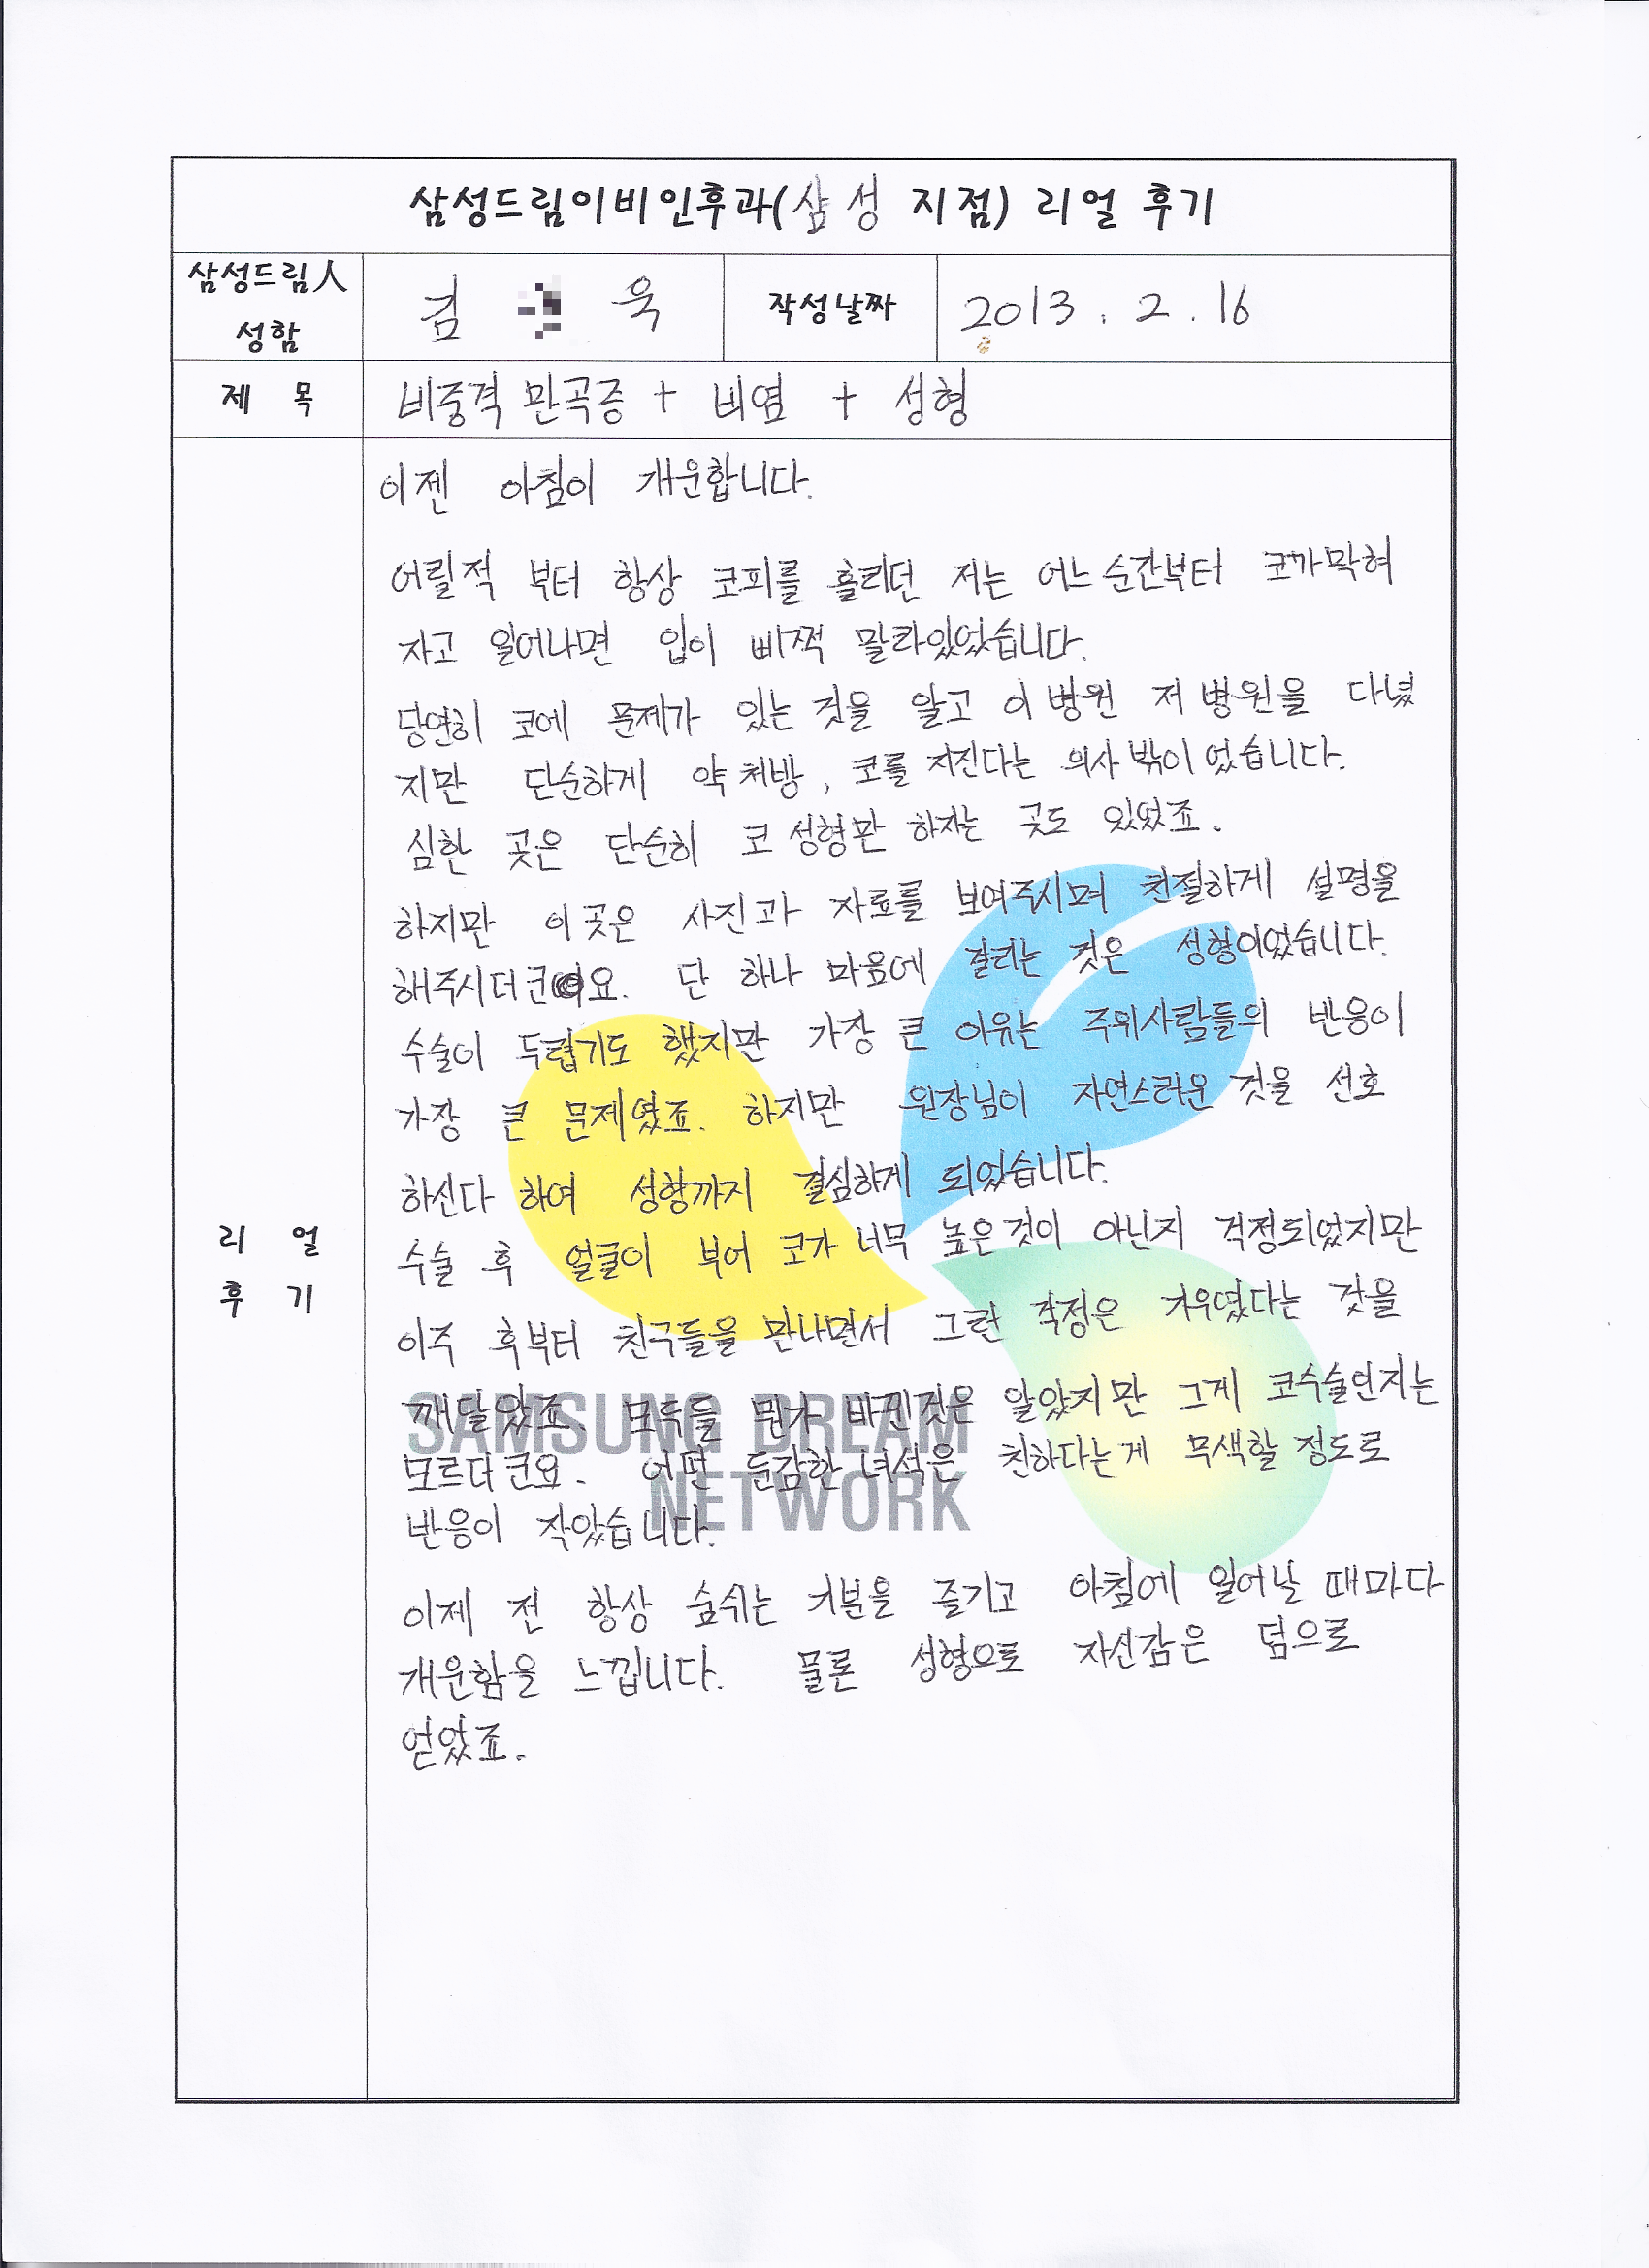 삼성드림이비인후과(삼성 지점) 리얼 후기
삼성드림人
성함
김 욱
작성날짜
2013. 2. 16
제 목
비중격 만곡증 + 비염 + 성형
이젠 아침이 개운합니다.
어릴적 부터 항상 코피를 흘리던 저는 어느 순간부터 코가막혀
자고 일어나면 입이 삐쩍 말라있었습니다.
당연히 코에 문제가 있는 것을 알고 이 병원 저 병원을 다녔
지만 단순하게 약 처방, 코를 지진다는 의사 밖이 었습니다.
심한 곳은 단순히 코 성형만 하자는 곳도 있었죠.
하지만 이 곳은 사진과 자료를 보여주시며 친절하게 설명을
해주시더군요. 단 하나 마음에 걸리는 것은 성형이었습니다.
수술이 두렵기도 했지만 가장 큰 이유는 주위사람들의 반응이
가장 큰 문제였죠. 하지만 원장님이 자연스러운 것을 선호
하신다 하여 성형까지 결심하게 되었습니다.
수술 후 얼굴이 부어 코가 너무 높은 것이 아닌지 걱정되었지만
이주 후부터 친구들을 만나면서 그런 걱정은 기우였다는 것을
깨달았죠. 모두들 뭔가 바뀐것은 알았지만 그게 코수술인지는
모르더군요. 어떤 둔감한 녀석은 친하다는게 무색할 정도로
반응이 작았습니다.
이제 전 항상 숨쉬는 기분을 즐기고 아침에 일어날 때마다
개운함을 느낍니다. 물론 성형으로 자신감은 덤으로
얻었죠.
리 얼
후 기
SAMSUNG DREAM
NETWORK